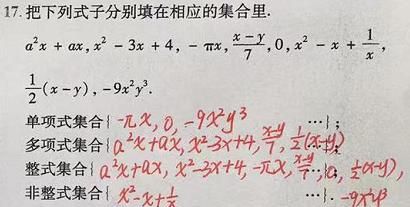 17. 把下列式子分别填在相应的集合里.
a²x + ax, x² − 3x + 4, − πx, (x−y)/7, 0, x² − x + 1/x,
1/2(x−y), −9x²y³.
单项式集合{ -πx, 0, -9x²y³ …};
多项式集合{ a²x+ax, x²-3x+4, (x-y)/7, 1/2(x-y) …};
整式集合{ a²x+ax, x²-3x+4, -πx, (x-y)/7, 0, 1/2(x-y), …};
非整式集合{ x²-x+1/x …}. -9x²y³